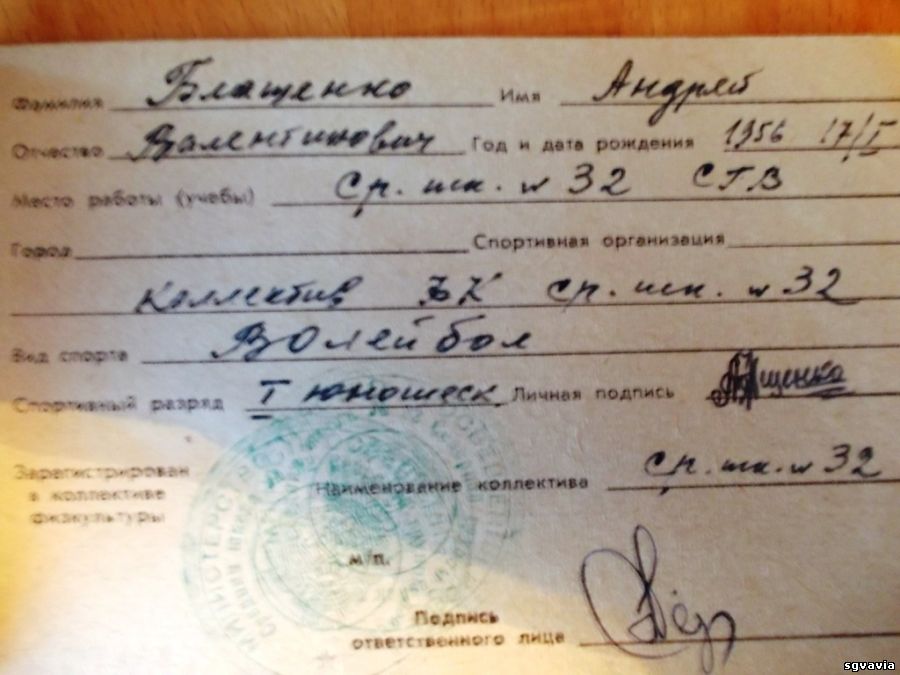 Фамилия Блащенко Имя Андрей
Отчество Валентинович Год и дата рождения 1956 17/I
Место работы (учебы) Ср. шк. № 32 СГВ
Город Спортивная организация
Коллектив ФК ср. шк. № 32
Вид спорта Волейбол
Спортивный разряд I юношеск. Личная подпись
Зарегистрирован
в коллективе
физкультуры
Наименование коллектива ср. шк. № 32
м/п.
Подпись
ответственного лица
sgvavia